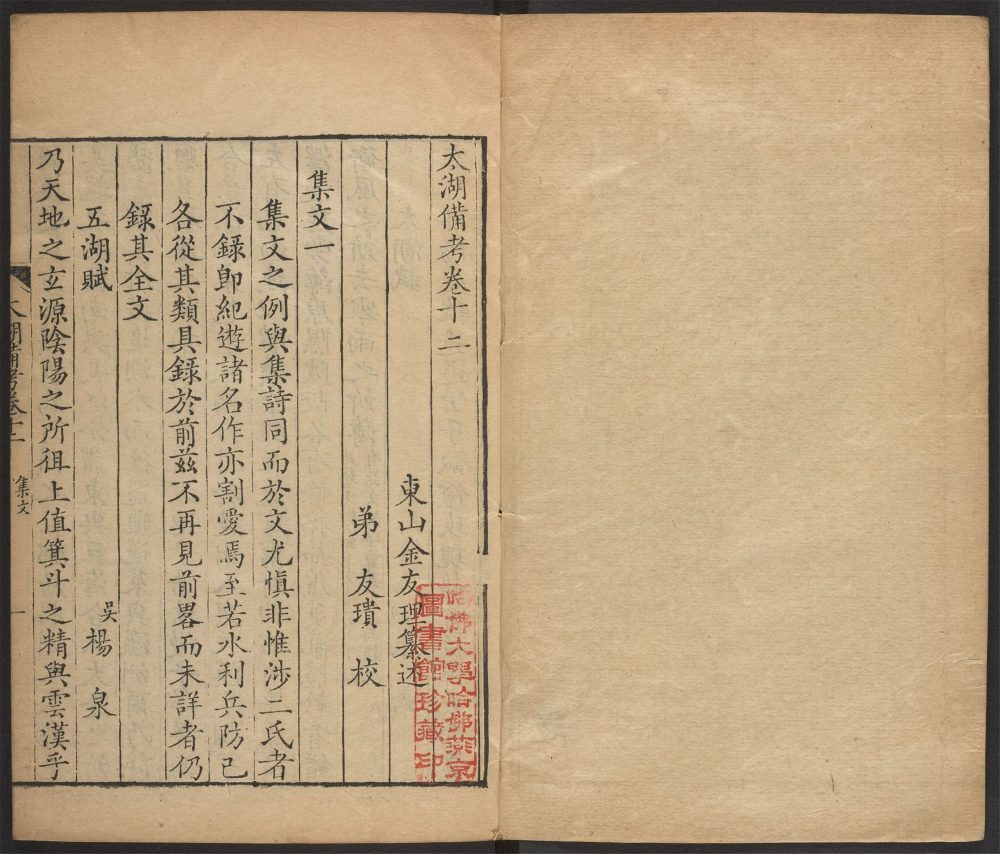 太湖備考卷十二
東山金友理纂述
弟友瓆校
集文一
集文之例與集詩同而於文尤愼非惟涉二氏者
不錄卽紀遊諸名作亦割愛焉至若水利兵防已
各從其類具錄於前兹不再見前畧而未詳者仍
錄其全文
五湖賦
吳楊泉
乃天地之玄源陰陽之所徂上值箕斗之精與雲漢乎
太湖備考卷十二
集文
一
哈佛大學哈佛燕京
圖書館珍藏印